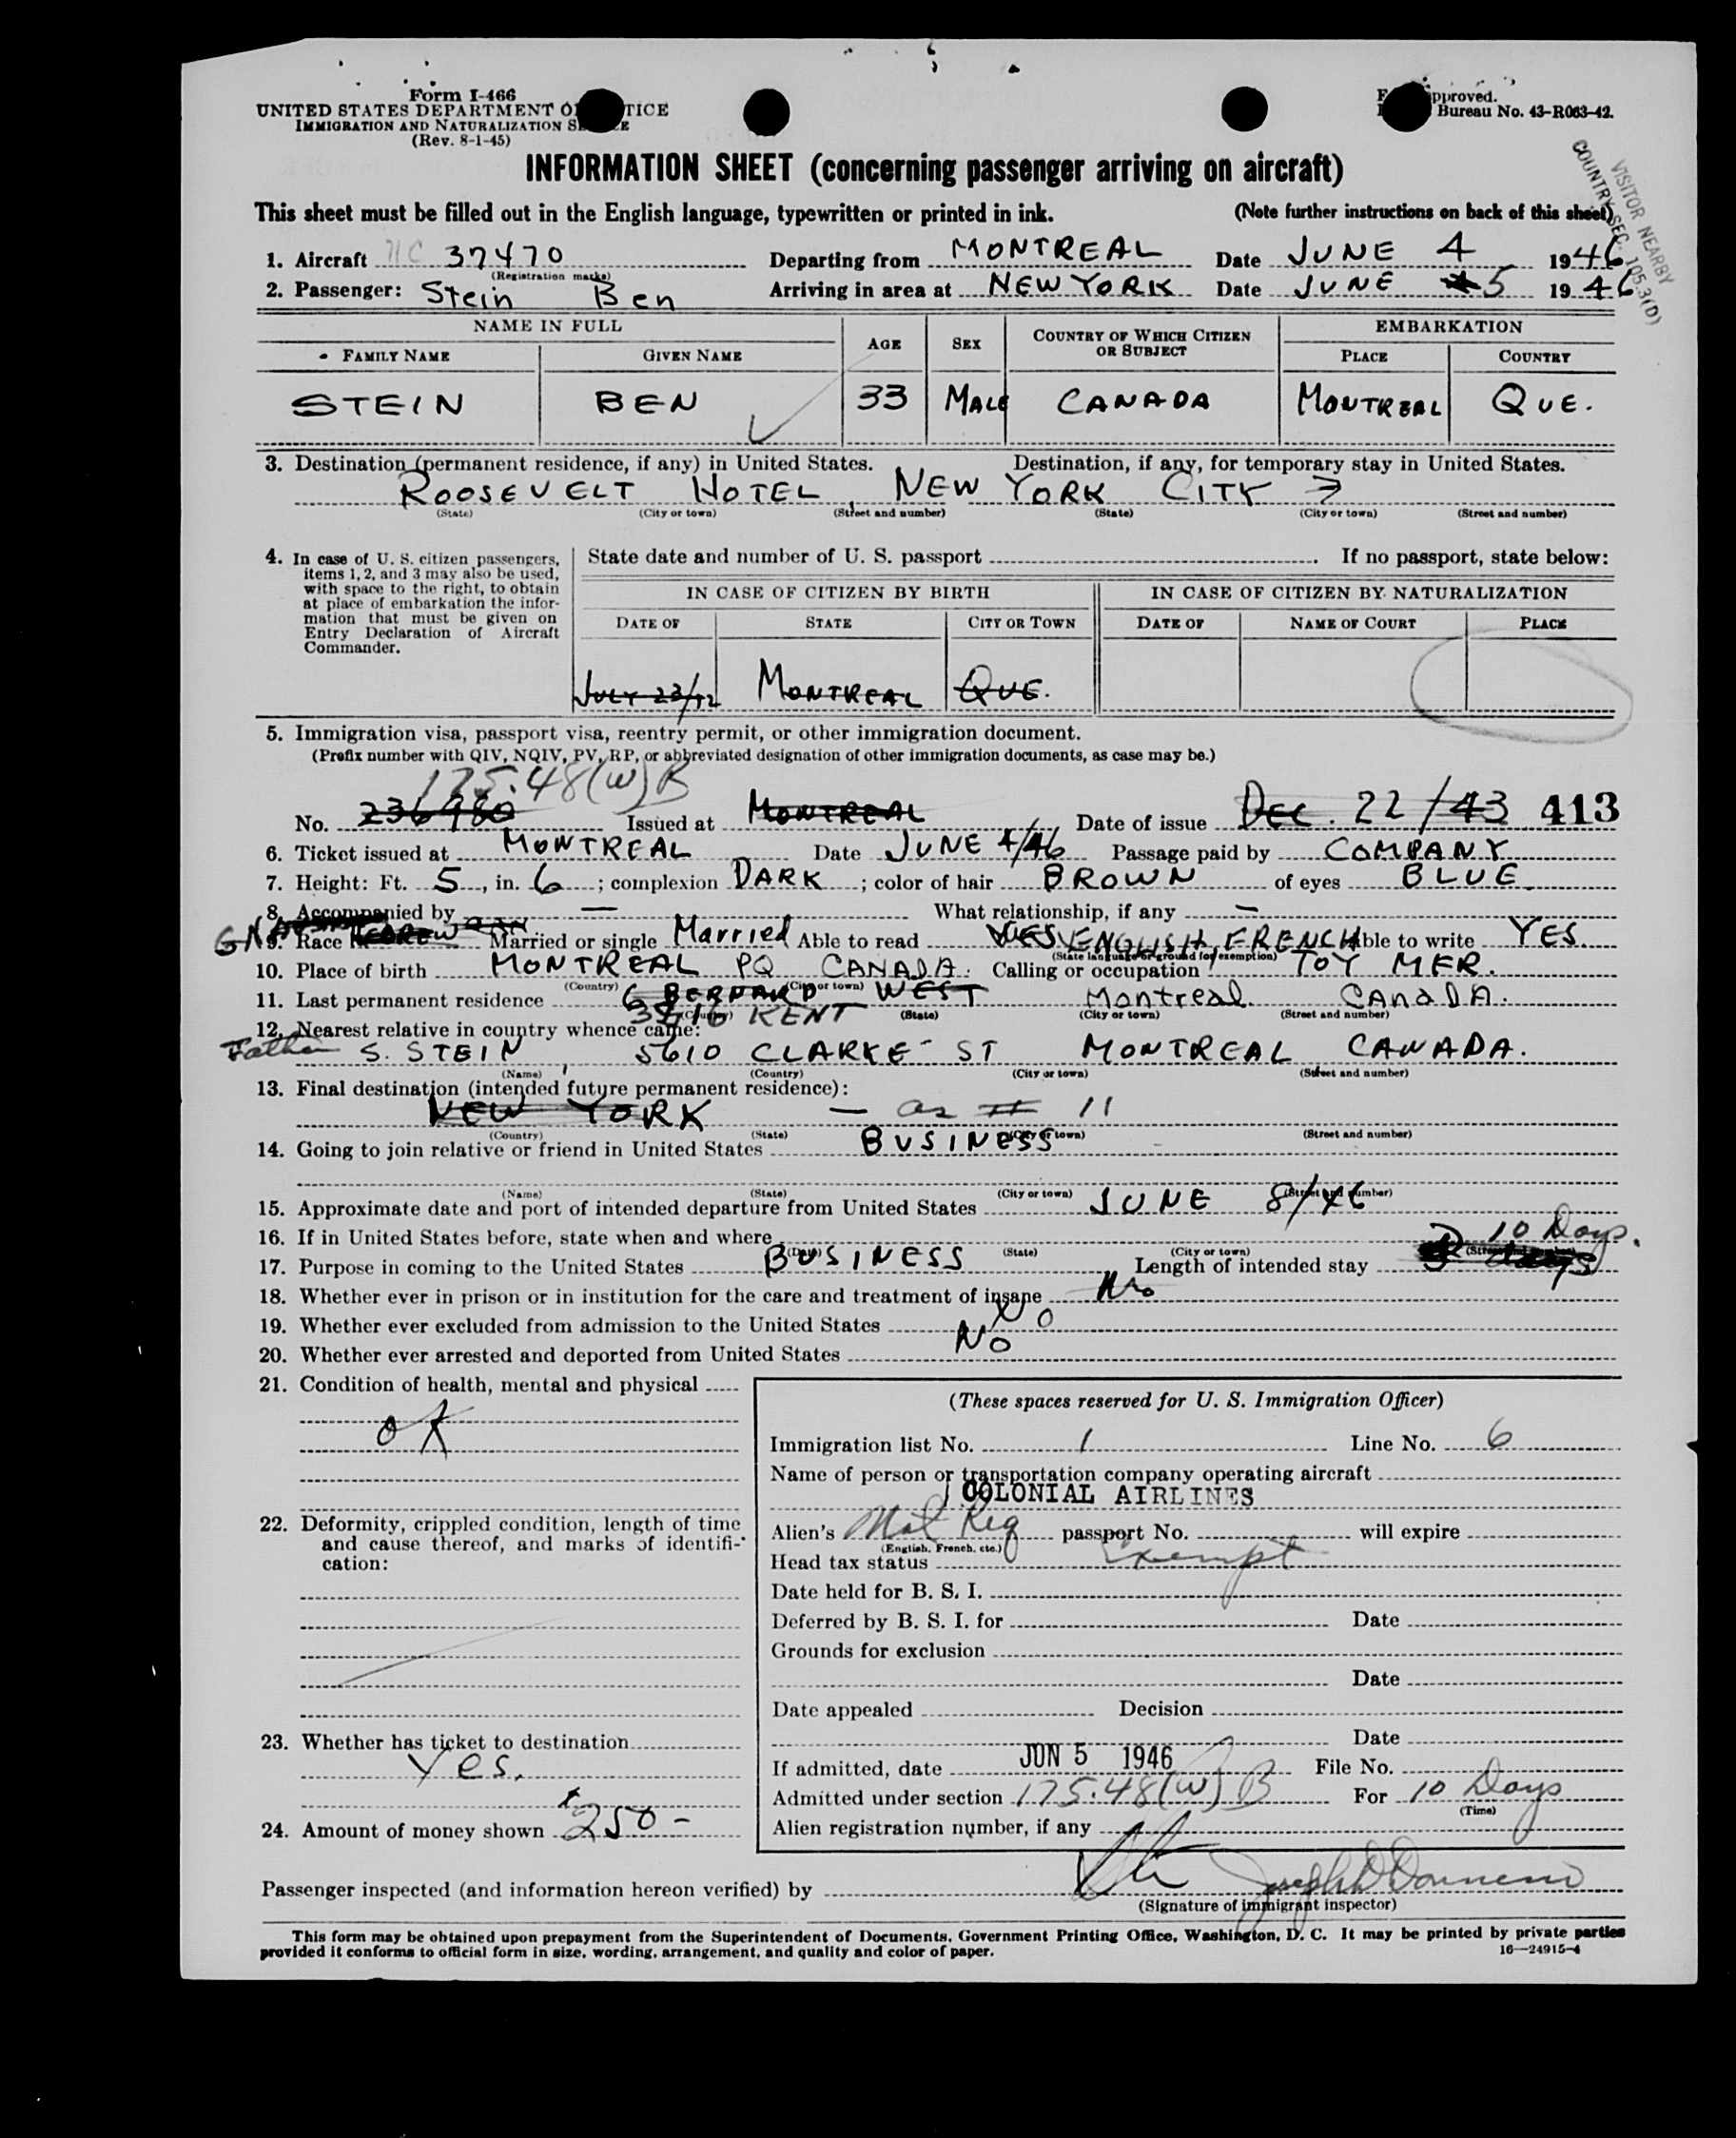 Form I-466
UNITED STATES DEPARTMENT OF TICE
IMMIGRATION AND NATURALIZATION S E
(Rev. 8-1-45)
pproved.
Bureau No. 43-R063-42.
INFORMATION SHEET (concerning passenger arriving on aircraft)
VISITOR NEARBY
COUNTRY SEC. 105.3(D)
This sheet must be filled out in the English language, typewritten or printed in ink. (Note further instructions on back of this sheet)
1. Aircraft NC 37470 Departing from MONTREAL Date JUNE 4 1946
(Registration marks)
2. Passenger: Stein Ben Arriving in area at NEW YORK Date JUNE 5 1946
NAME IN FULL AGE SEX COUNTRY OF WHICH CITIZEN OR SUBJECT EMBARKATION
FAMILY NAME GIVEN NAME PLACE COUNTRY
STEIN BEN 33 MALE CANADA MONTREAL QUE.
3. Destination (permanent residence, if any) in United States. Destination, if any, for temporary stay in United States.
ROOSEVELT HOTEL, NEW YORK CITY
(State) (City or town) (Street and number) (State) (City or town) (Street and number)
4. In case of U. S. citizen passengers, items 1, 2, and 3 may also be used, with space to the right, to obtain at place of embarkation the information that must be given on Entry Declaration of Aircraft Commander.
State date and number of U. S. passport If no passport, state below:
IN CASE OF CITIZEN BY BIRTH IN CASE OF CITIZEN BY NATURALIZATION
DATE OF STATE CITY OR TOWN DATE OF NAME OF COURT PLACE
JULY 23/12 MONTREAL QUE.
5. Immigration visa, passport visa, reentry permit, or other immigration document.
(Prefix number with QIV, NQIV, PV, RP, or abbreviated designation of other immigration documents, as case may be.)
175.48(W)B
No. 236980 Issued at MONTREAL Date of issue DEC. 22/43 413
6. Ticket issued at MONTREAL Date JUNE 4/46 Passage paid by COMPANY
7. Height: Ft. 5, in. 6; complexion DARK; color of hair BROWN of eyes BLUE
8. Accompanied by — What relationship, if any —
9. Race HEBREW Married or single Married Able to read YES, ENGLISH, FRENCH Able to write YES.
(State language or ground for exemption)
10. Place of birth MONTREAL PQ CANADA. Calling or occupation TOY MFR.
(Country) (City or town)
11. Last permanent residence 6 BERNARD WEST Montreal. CANADA.
3516 KENT
(Country) (State) (City or town) (Street and number)
12. Nearest relative in country whence came:
Father S. STEIN, 5610 CLARKE ST MONTREAL CANADA.
(Name) (Country) (City or town) (Street and number)
13. Final destination (intended future permanent residence):
NEW YORK — as # 11
(Country) (State) (City or town) (Street and number)
14. Going to join relative or friend in United States BUSINESS
(Name) (State) (City or town) (Street and number)
15. Approximate date and port of intended departure from United States JUNE 8/46
16. If in United States before, state when and where
(Date) (State) (City or town) (Street and number)
10 Days.
17. Purpose in coming to the United States BUSINESS Length of intended stay days
18. Whether ever in prison or in institution for the care and treatment of insane No
19. Whether ever excluded from admission to the United States No
20. Whether ever arrested and deported from United States No
21. Condition of health, mental and physical
OK
22. Deformity, crippled condition, length of time and cause thereof, and marks of identification:
23. Whether has ticket to destination
Yes.
24. Amount of money shown $250-
(These spaces reserved for U. S. Immigration Officer)
Immigration list No. 1 Line No. 6
Name of person or transportation company operating aircraft
COLONIAL AIRLINES
Alien's Nat Reg passport No. will expire
(English, French, etc.)
Head tax status Exempt
Date held for B. S. I.
Deferred by B. S. I. for Date
Grounds for exclusion
Date
Date appealed Decision
Date
If admitted, date JUN 5 1946 File No.
Admitted under section 175.48(W)B For 10 Days
(Time)
Alien registration number, if any
Passenger inspected (and information hereon verified) by
(Signature of immigrant inspector)
This form may be obtained upon prepayment from the Superintendent of Documents, Government Printing Office, Washington, D. C. It may be printed by private parties
provided it conforms to official form in size, wording, arrangement, and quality and color of paper. 16—24915-4